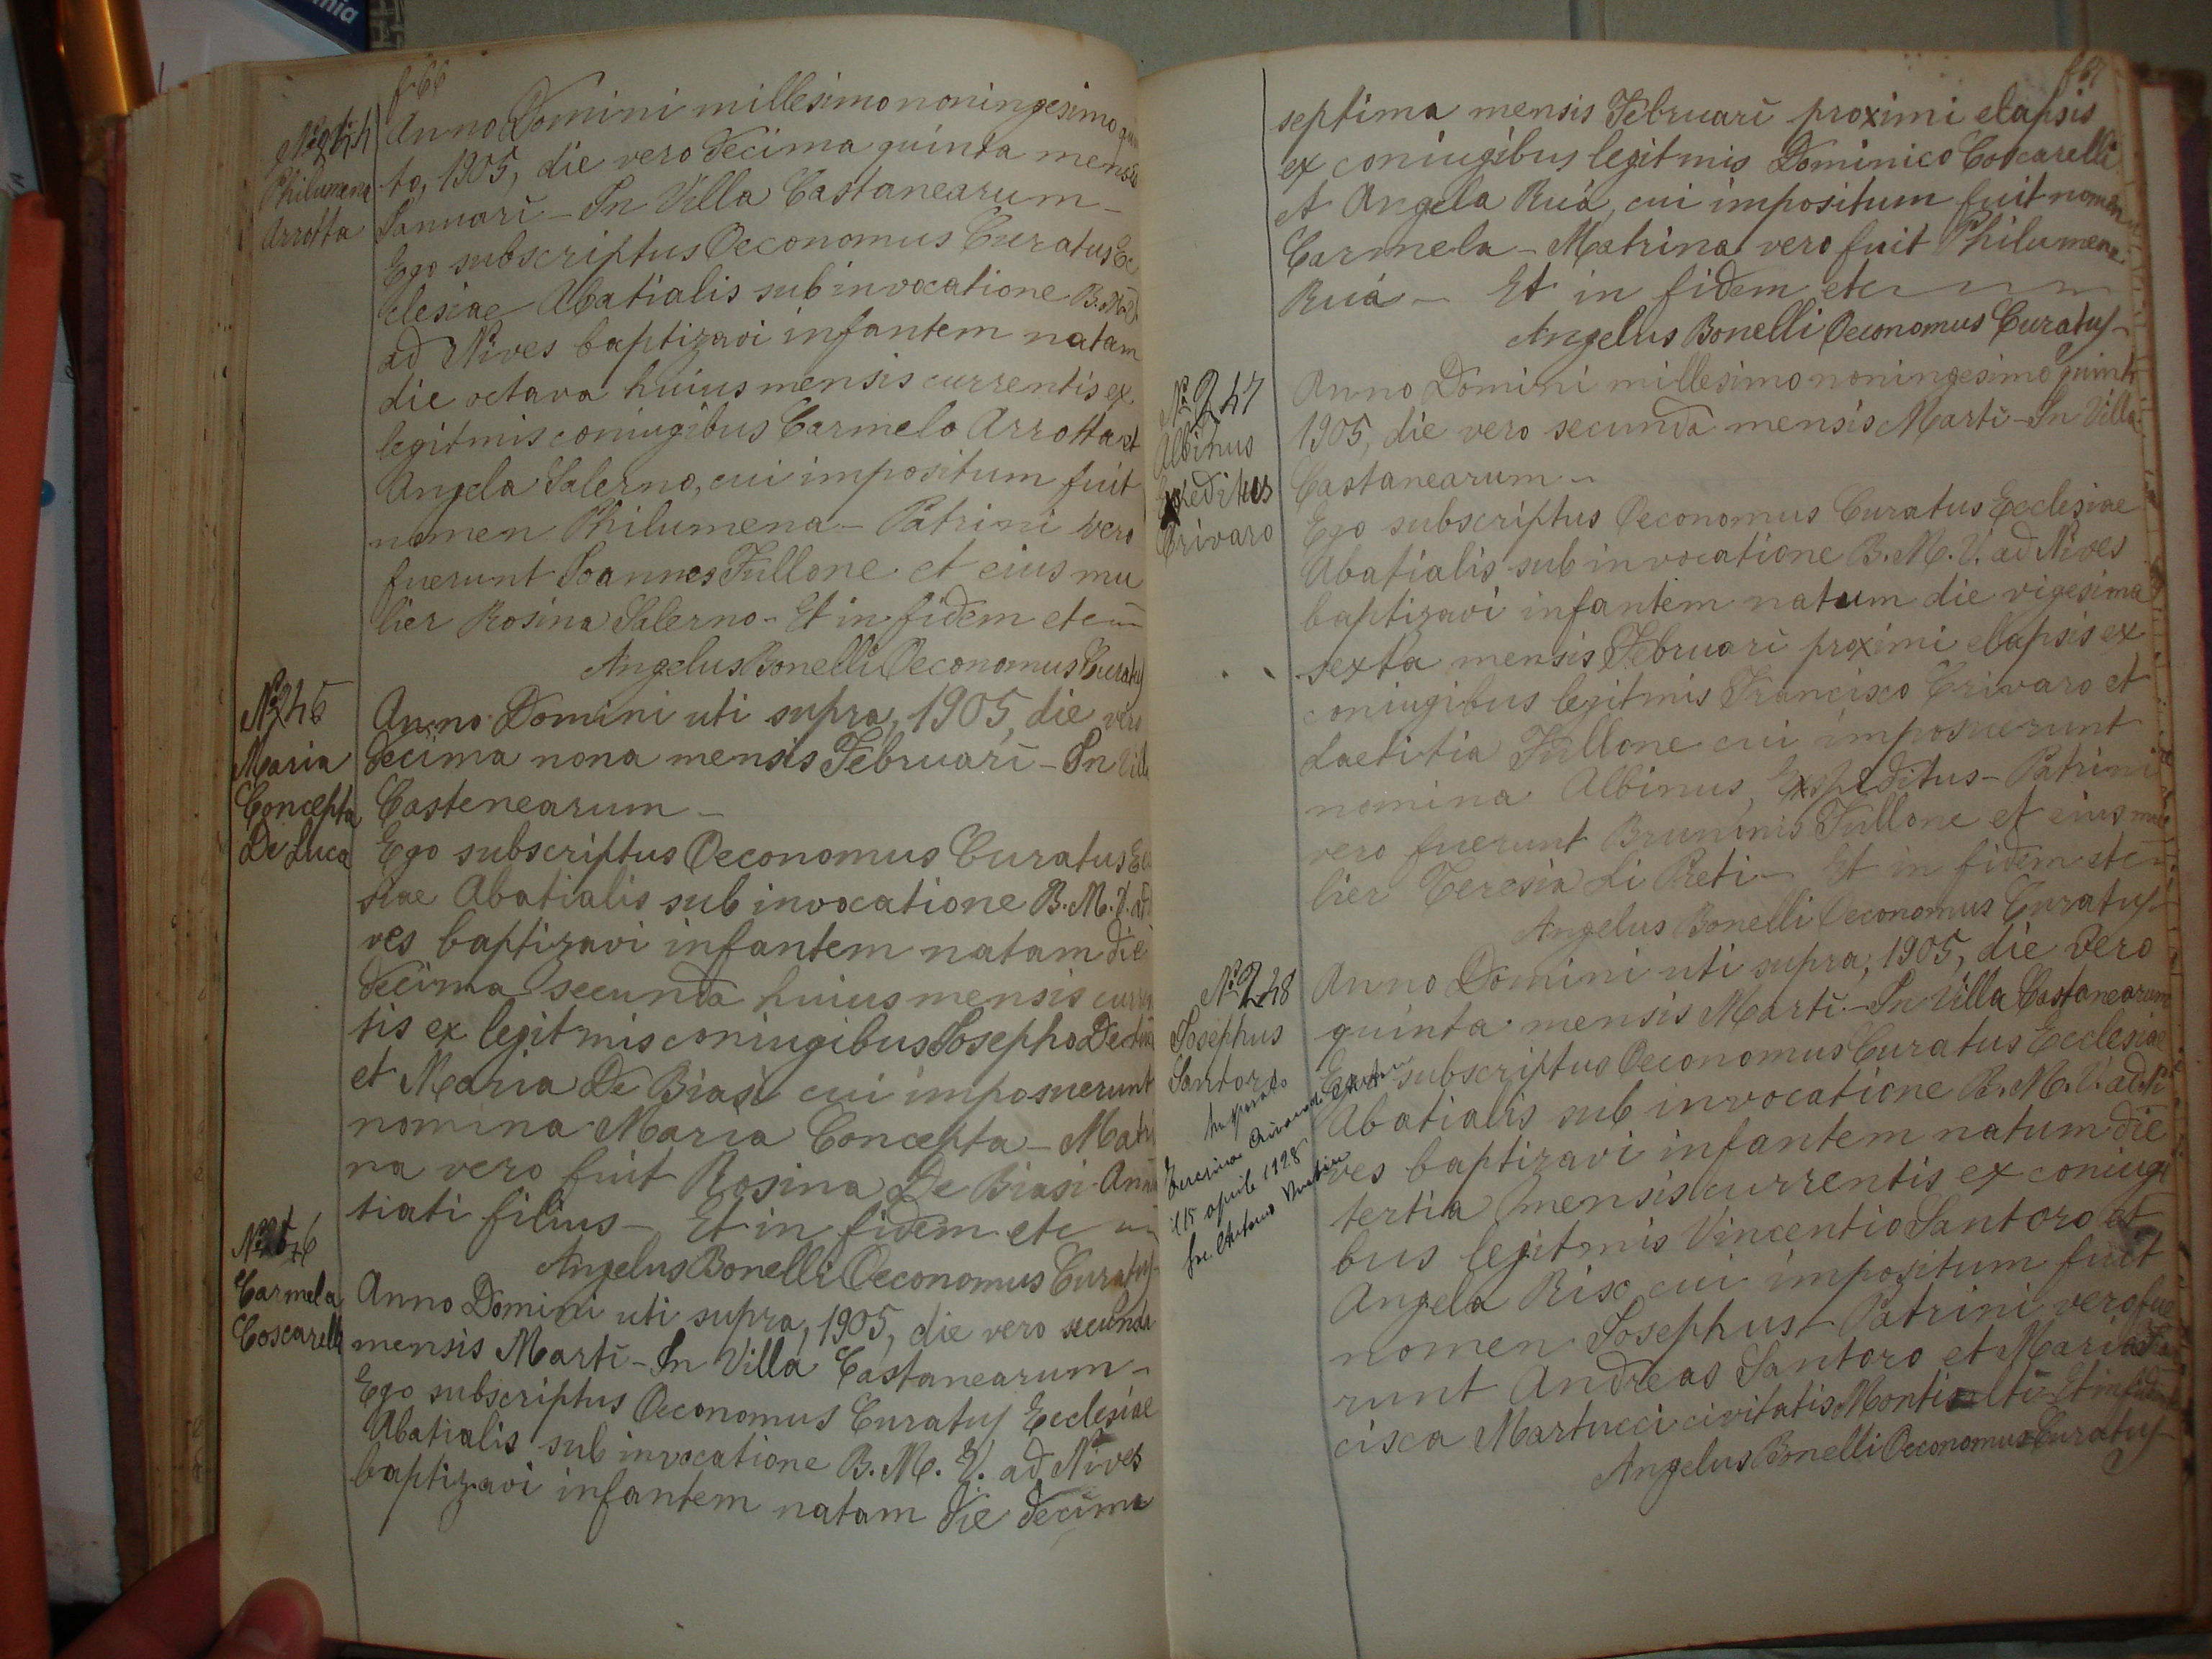 f 66
Nº 244
Philumena
Arrotta
Anno Domini millesimo noningesimo quin
to, 1905, die vero decima quinta mensis
Januarĩ - In Villa Castanearum -
Ego subscriptus Oeconomus Curatus Ec
clesiae Abatialis sub invocatione B. M. V.
ad Nives baptizavi infantem natam
die octava huius mensis currentis ex
legitmis coniugibus Carmelo Arrotta et
Angela Salerno, cui impositum fuit
nomen Philumena - Patrini vero
fuerunt Joannes Fullone et eius mu
lier Rosina Salerno - Et in fidem etc
Angelus Bonelli Oeconomus Curatus
Nº 245
Maria
Concepta
De Luca
Anno Domini uti supra, 1905, die vero
decima nona mensis Februarĩ - In Villa
Castenearum -
Ego subscriptus Oeconomus Curatus Ec
siae Abatialis sub invocatione B. M. V. ad
ves baptizavi infantem natam die
decima secunda huius mensis curren
tis ex legitmis coniugibus Josepho De Luca
et Maria De Biasi cui imposuerunt
nomina Maria Concepta - Matri
na vero fuit Rosina De Biasi
tiati filius - Et in fidem etc
Angelus Bonelli Oeconomus Curatus
Carmela
Coscarelli
Anno Domini uti supra, 1905, die vero secunda
mensis Martĩ - In Villa Castanearum -
Ego subscriptus Oeconomus Curatus Ecclesiae
Abatialis sub invocatione B. M. V. ad Nives
baptizavi infantem natam die decima
septima mensis Februarĩ proximi elapsis
ex coniugibus legitmis Dominico Coscarelli
et Angela Ruà, cui impositum fuit nomen
Carmela - Matrina vero fuit Philumena
Ruà - Et in fidem etc
Angelus Bonelli Oeconomus Curatus -
Nº 247
Albinus
Expeditus
Crivaro
Anno Domini millesimo noningesimo quinto
1905, die vero secunda mensis Martĩ - In Villa
Castanearum -
Ego subscriptus Oeconomus Curatus Ecclesiae
Abatialis sub invocatione B. M. V. ad Nives
baptizavi infantem natum die vigesima
sexta mensis Februarĩ proximi elapsis ex
coniugibus legitmis Francisco Crivaro et
Laetitia Fullone cui imposuerunt
nomina Albinus, Expeditus - Patrini
vero fuerunt Brunonis Fullone et eius mu
lier Teresia di Preti - Et in fidem etc
Angelus Bonelli Oeconomus Curatus
Nº 248
Josephus
Santoro
il 15 aprile 1928
Anno Domini uti supra, 1905, die vero
quinta mensis Martĩ - In Villa Castanearum
Ego subscriptus Oeconomus Curatus Ecclesiae
Abatialis sub invocatione B. M. V. ad Ni
ves baptizavi infantem natum die
tertia mensis currentis ex coniugi
bus legitmis Vincentio Santoro et
Angela Riso cui impositum fuit
nomen Josephus - Patrini vero fue
runt Andreas Santoro et Maria Fran
cisca Martucci civitatis Montis alti Et in fidem
Angelus Bonelli Oeconomus Curatus